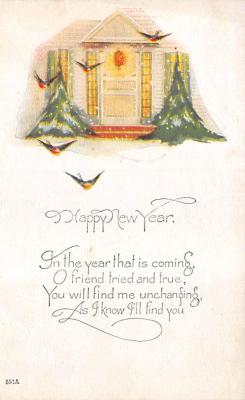 Happy New Year.
In the year that is coming,
O friend tried and true,
You will find me unchanging,
As I know I'll find you